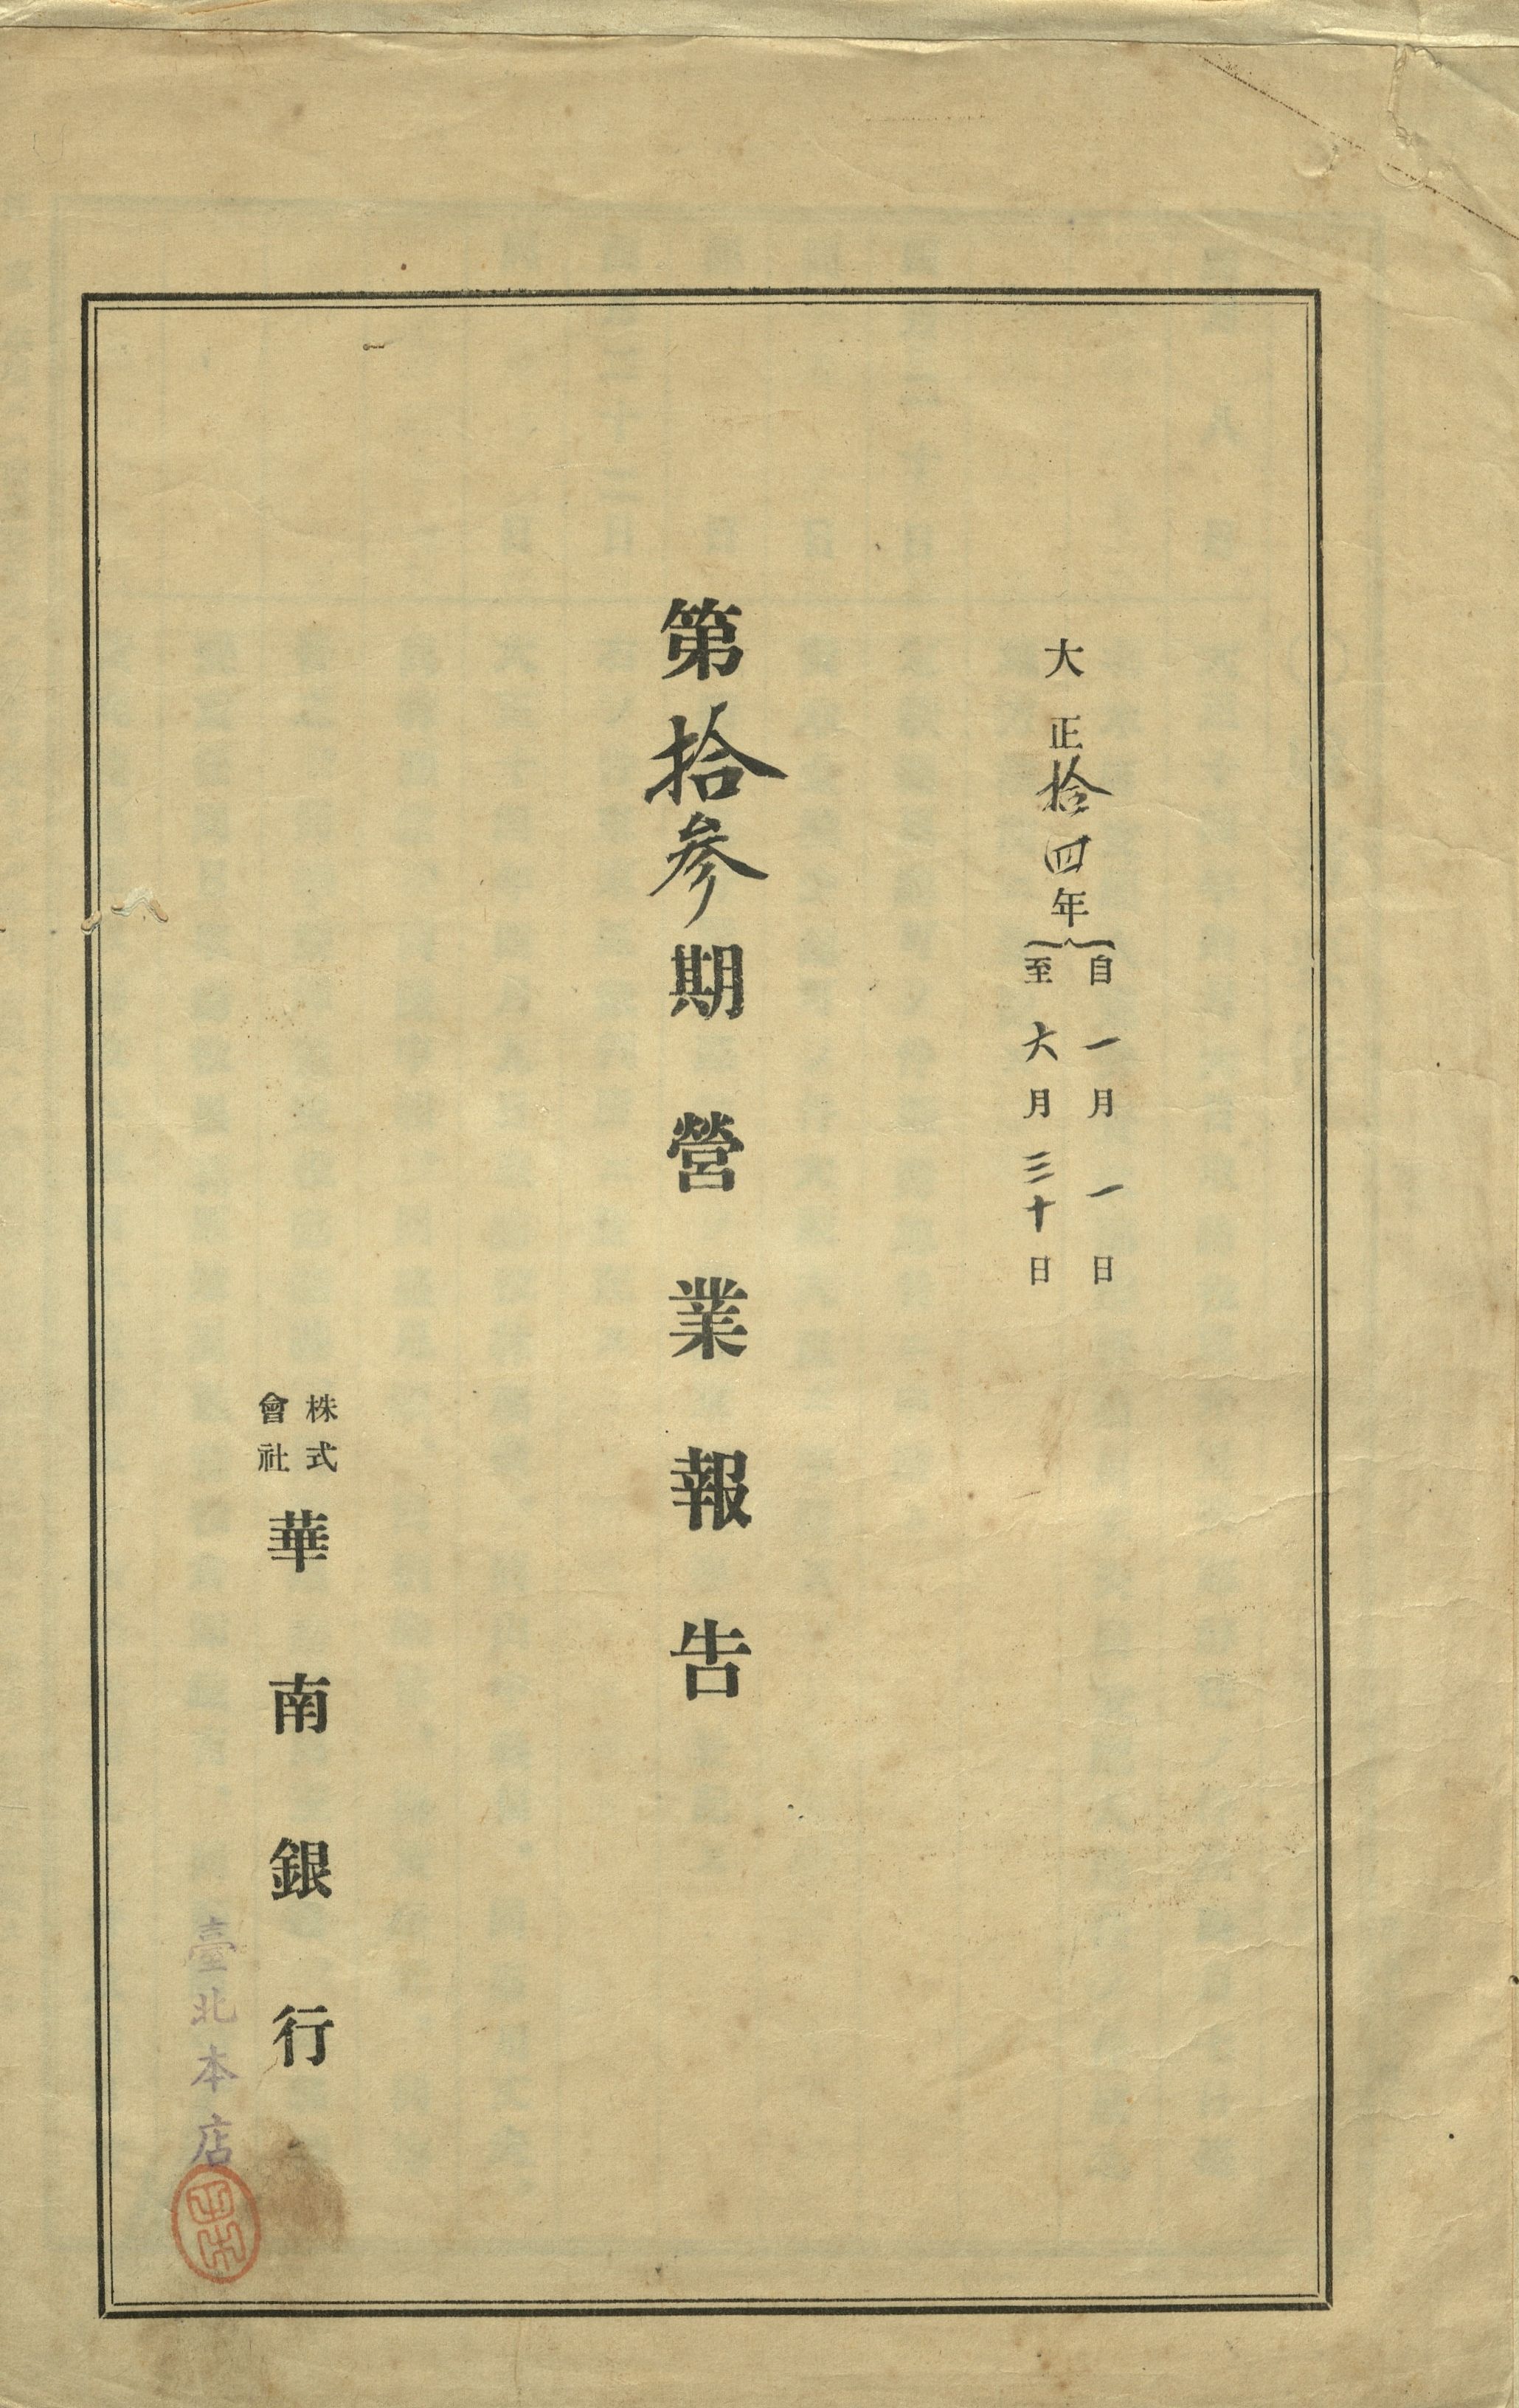 大正拾四年
自一月一日
至六月三十日
第拾參期營業報告
株式
會社
華南銀行
臺北本店